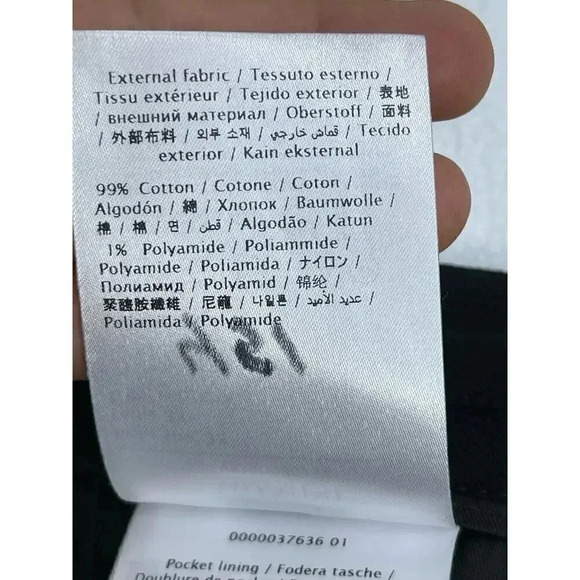 External fabric / Tessuto esterno /
Tissu extérieur / Tejido exterior / 表地
/ внешний материал / Oberstoff / 面料
/ 外部布料 / 외부 소재 / قماش خارجي / Tecido
exterior / Kain eksternal
99% Cotton / Cotone / Coton /
Algodón / 綿 / Хлопок / Baumwolle /
棉 / 棉 / 면 / قطن / Algodão / Katun
1% Polyamide / Poliammide /
Polyamide / Poliamida / ナイロン /
Полиамид / Polyamid / 锦纶 /
聚醯胺纖維 / 尼龍 / 나일론 / عديد الأميد /
Poliamida / Polyamide
0000037636 01
Pocket lining / Fodera tasche /